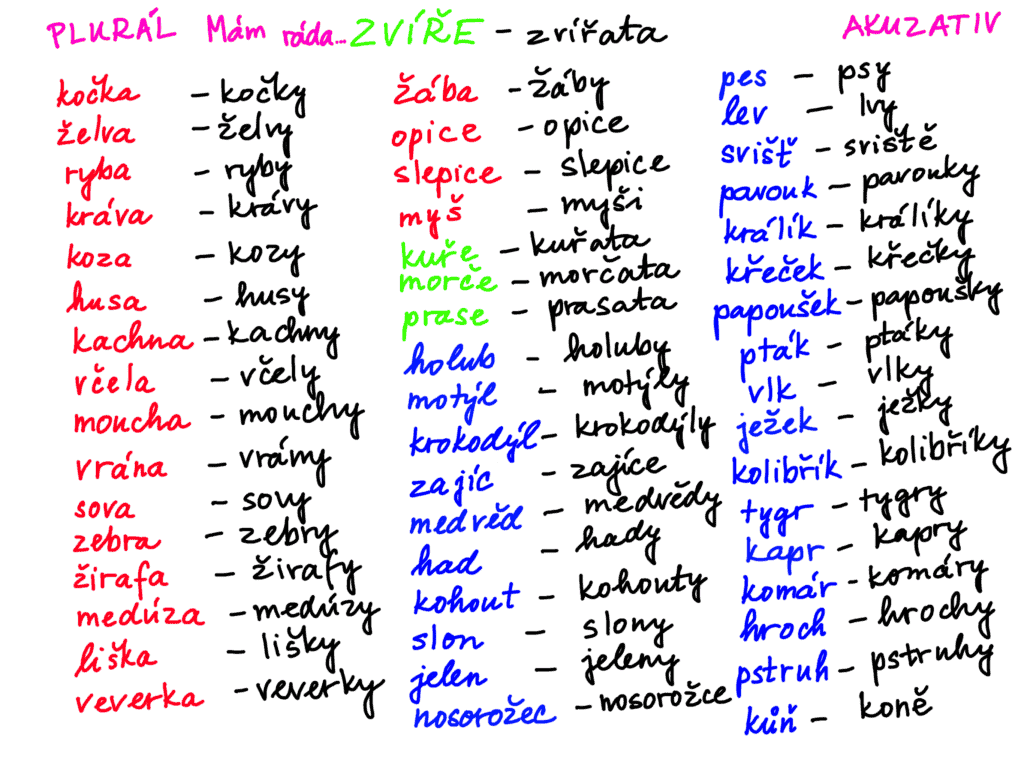 PLURÁL Mám ráda... ZVÍŘE – zvířata AKUZATIV
kočka – kočky
želva – želvy
ryba – ryby
kráva – krávy
koza – kozy
husa – husy
kachna – kachny
včela – včely
moucha – mouchy
vrána – vrány
sova – sovy
zebra – zebry
žirafa – žirafy
medúza – medúzy
liška – lišky
veverka – veverky
žába – žáby
opice – opice
slepice – slepice
myš – myši
kuře – kuřata
morče – morčata
prase – prasata
holub – holuby
motýl – motýly
krokodýl – krokodýly
zajíc – zajíce
medvěd – medvědy
had – hady
kohout – kohouty
slon – slony
jelen – jeleny
nosorožec – nosorožce
pes – psy
lev – lvy
svišť – sviště
pavouk – pavouky
králík – králíky
křeček – křečky
papoušek – papoušky
pták – ptáky
vlk – vlky
ježek – ježky
kolibřík – kolibříky
tygr – tygry
kapr – kapry
komár – komáry
hroch – hrochy
pstruh – pstruhy
kůň – koně